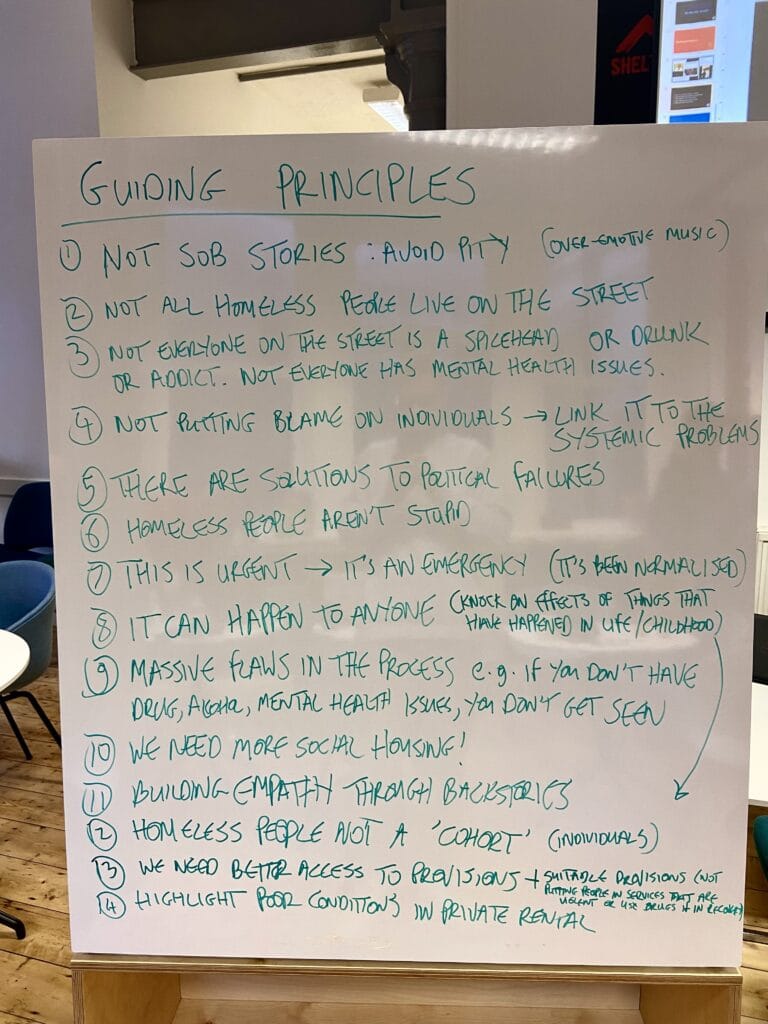 SHEL
GUIDING PRINCIPLES
① NOT SOB STORIES : AVOID PITY (OVER-EMOTIVE MUSIC)
② NOT ALL HOMELESS PEOPLE LIVE ON THE STREET
③ NOT EVERYONE ON THE STREET IS A SPICEHEAD OR DRUNK
OR ADDICT. NOT EVERYONE HAS MENTAL HEALTH ISSUES.
④ NOT PUTTING BLAME ON INDIVIDUALS → LINK IT TO THE
SYSTEMIC PROBLEMS
⑤ THERE ARE SOLUTIONS TO POLITICAL FAILURES
⑥ HOMELESS PEOPLE AREN'T STUPID
⑦ THIS IS URGENT → IT'S AN EMERGENCY (IT'S BEEN NORMALISED)
⑧ IT CAN HAPPEN TO ANYONE (KNOCK ON EFFECTS OF THINGS THAT
HAVE HAPPENED IN LIFE/CHILDHOOD)
⑨ MASSIVE FLAWS IN THE PROCESS e.g. IF YOU DON'T HAVE
DRUG, ALCOHOL, MENTAL HEALTH ISSUES, YOU DON'T GET SEEN
⑩ WE NEED MORE SOCIAL HOUSING!
⑪ BUILDING EMPATHY THROUGH BACKSTORIES
⑫ HOMELESS PEOPLE NOT A 'COHORT' (INDIVIDUALS)
⑬ WE NEED BETTER ACCESS TO PROVISIONS + SUITABLE PROVISIONS (NOT
PUTTING PEOPLE IN SERVICES THAT ARE
VIOLENT OR USE DRUGS IF IN RECOVERY)
⑭ HIGHLIGHT POOR CONDITIONS IN PRIVATE RENTAL